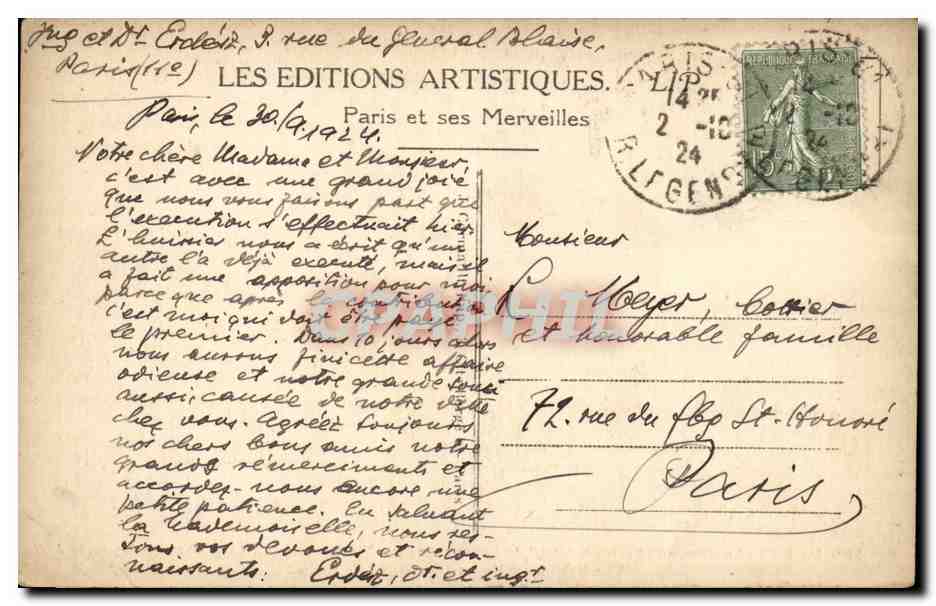 Ing et Dr Erdész, 3. rue du General Blaise,
Paris (11e)
LES EDITIONS ARTISTIQUES. L/P
Paris et ses Merveilles
Paris, le 30./9.1924.
Notre chère Madame et Monsieur,
c'est avec une grand joié
que nous vous faisons part que
l'execution s'effectuait hier.
L'huissier nous a écrit qu'un
autre l'a déjà executé, mais il
a fait une apposition pour moi,
parce que après la contribution
c'est moi qui doit être payé
le premier. Dans 10 jours alors
nous aurons fini cette affaire
odieuse et notre grande souci
aussi, causée de notre dette
chez vous. Agréez toujours
nos chers bons amis notre
grands rémerciments et
accordez-nous encore une
petite patience. En saluant
la Mademoiselle, nous res-
tons, vos devoués et recon-
naissants:
Erdész, Dr. et ingr
Monsieur
Meyer, Bottier
et honorable famille
72. rue du fbg St-Honoré
Paris
REPUBLIQUE FRANÇAISE
15
PARIS
14
2 -10
24
R. LEGENDRE
CPAPHIL